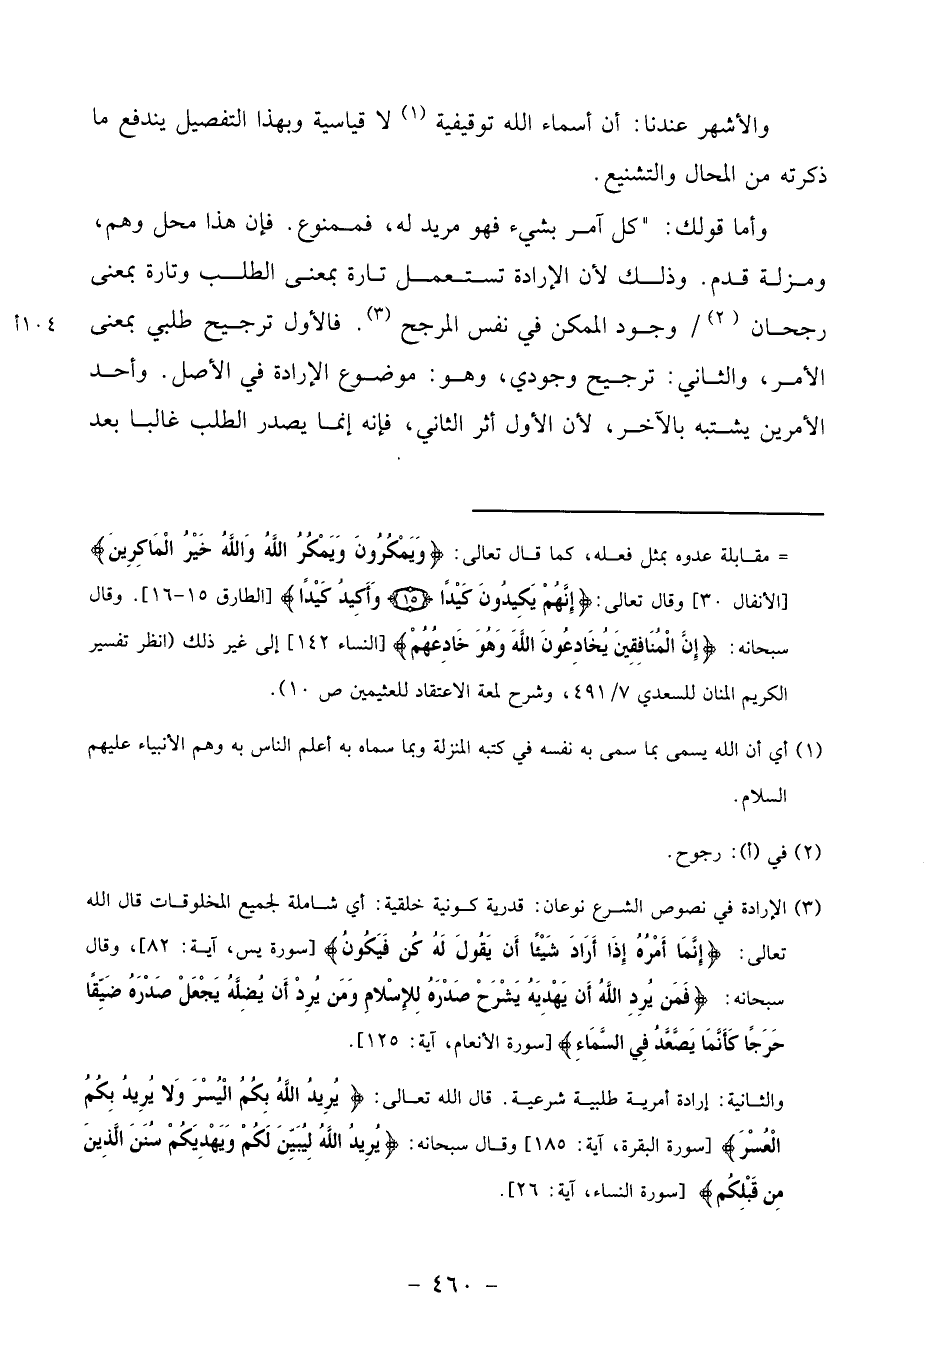 والأشهر عندنا: أن أسماء الله توقيفية (١) لا قياسية وبهذا التفصيل يندفع ما
ذكرته من المحال والتشنيع.
وأما قولك: "كل آمر بشيء فهو مريد له، فممنوع. فإن هذا محل وهم،
ومزلة قدم. وذلك لأن الإرادة تستعمل تارة بمعنى الطلب وتارة بمعنى
رجحان (٢) / وجود الممكن في نفس المرجح (٣). فالأول ترجيح طلبي بمعنى
١٠٤أ
الأمر، والثاني: ترجيح وجودي، وهو: موضوع الإرادة في الأصل. وأحد
الأمرين يشتبه بالآخر، لأن الأول أثر الثاني، فإنه إنما يصدر الطلب غالبا بعد
= مقابلة عدوه بمثل فعله، كما قال تعالى: ﴿وَيَمْكُرُونَ وَيَمْكُرُ اللَّهُ وَاللَّهُ خَيْرُ الْمَاكِرِينَ﴾
[الأنفال ٣٠] وقال تعالى: ﴿إِنَّهُمْ يَكِيدُونَ كَيْدًا ﴿١٥﴾ وَأَكِيدُ كَيْدًا﴾ [الطارق ١٥-١٦]. وقال
سبحانه: ﴿إِنَّ الْمُنَافِقِينَ يُخَادِعُونَ اللَّهَ وَهُوَ خَادِعُهُمْ﴾ [النساء ١٤٢] إلى غير ذلك (انظر تفسير
الكريم المنان للسعدي ٤٩١/٧، وشرح لمعة الاعتقاد للعثيمين ص ١٠).
(١) أي أن الله يسمى بما سمى به نفسه في كتبه المنزلة وبما سماه به أعلم الناس به وهم الأنبياء عليهم
السلام.
(٢) في (أ): رجوح.
(٣) الإرادة في نصوص الشرع نوعان: قدرية كونية خلقية: أي شاملة لجميع المخلوقات قال الله
تعالى: ﴿إِنَّمَا أَمْرُهُ إِذَا أَرَادَ شَيْئًا أَن يَقُولَ لَهُ كُن فَيَكُونُ﴾ [سورة يس، آية: ٨٢]، وقال
سبحانه: ﴿فَمَن يُرِدِ اللَّهُ أَن يَهْدِيَهُ يَشْرَحْ صَدْرَهُ لِلإِسْلامِ وَمَن يُرِدْ أَن يُضِلَّهُ يَجْعَلْ صَدْرَهُ ضَيِّقًا
حَرَجًا كَأَنَّمَا يَصَّعَّدُ فِي السَّمَاءِ﴾ [سورة الأنعام، آية: ١٢٥].
والثانية: إرادة أمرية طلبية شرعية. قال الله تعالى: ﴿يُرِيدُ اللَّهُ بِكُمُ الْيُسْرَ وَلا يُرِيدُ بِكُمُ
الْعُسْرَ﴾ [سورة البقرة، آية: ١٨٥] وقال سبحانه: ﴿يُرِيدُ اللَّهُ لِيُبَيِّنَ لَكُمْ وَيَهْدِيَكُمْ سُنَنَ الَّذِينَ
مِن قَبْلِكُمْ﴾ [سورة النساء، آية: ٢٦].
- ٤٦٠ -